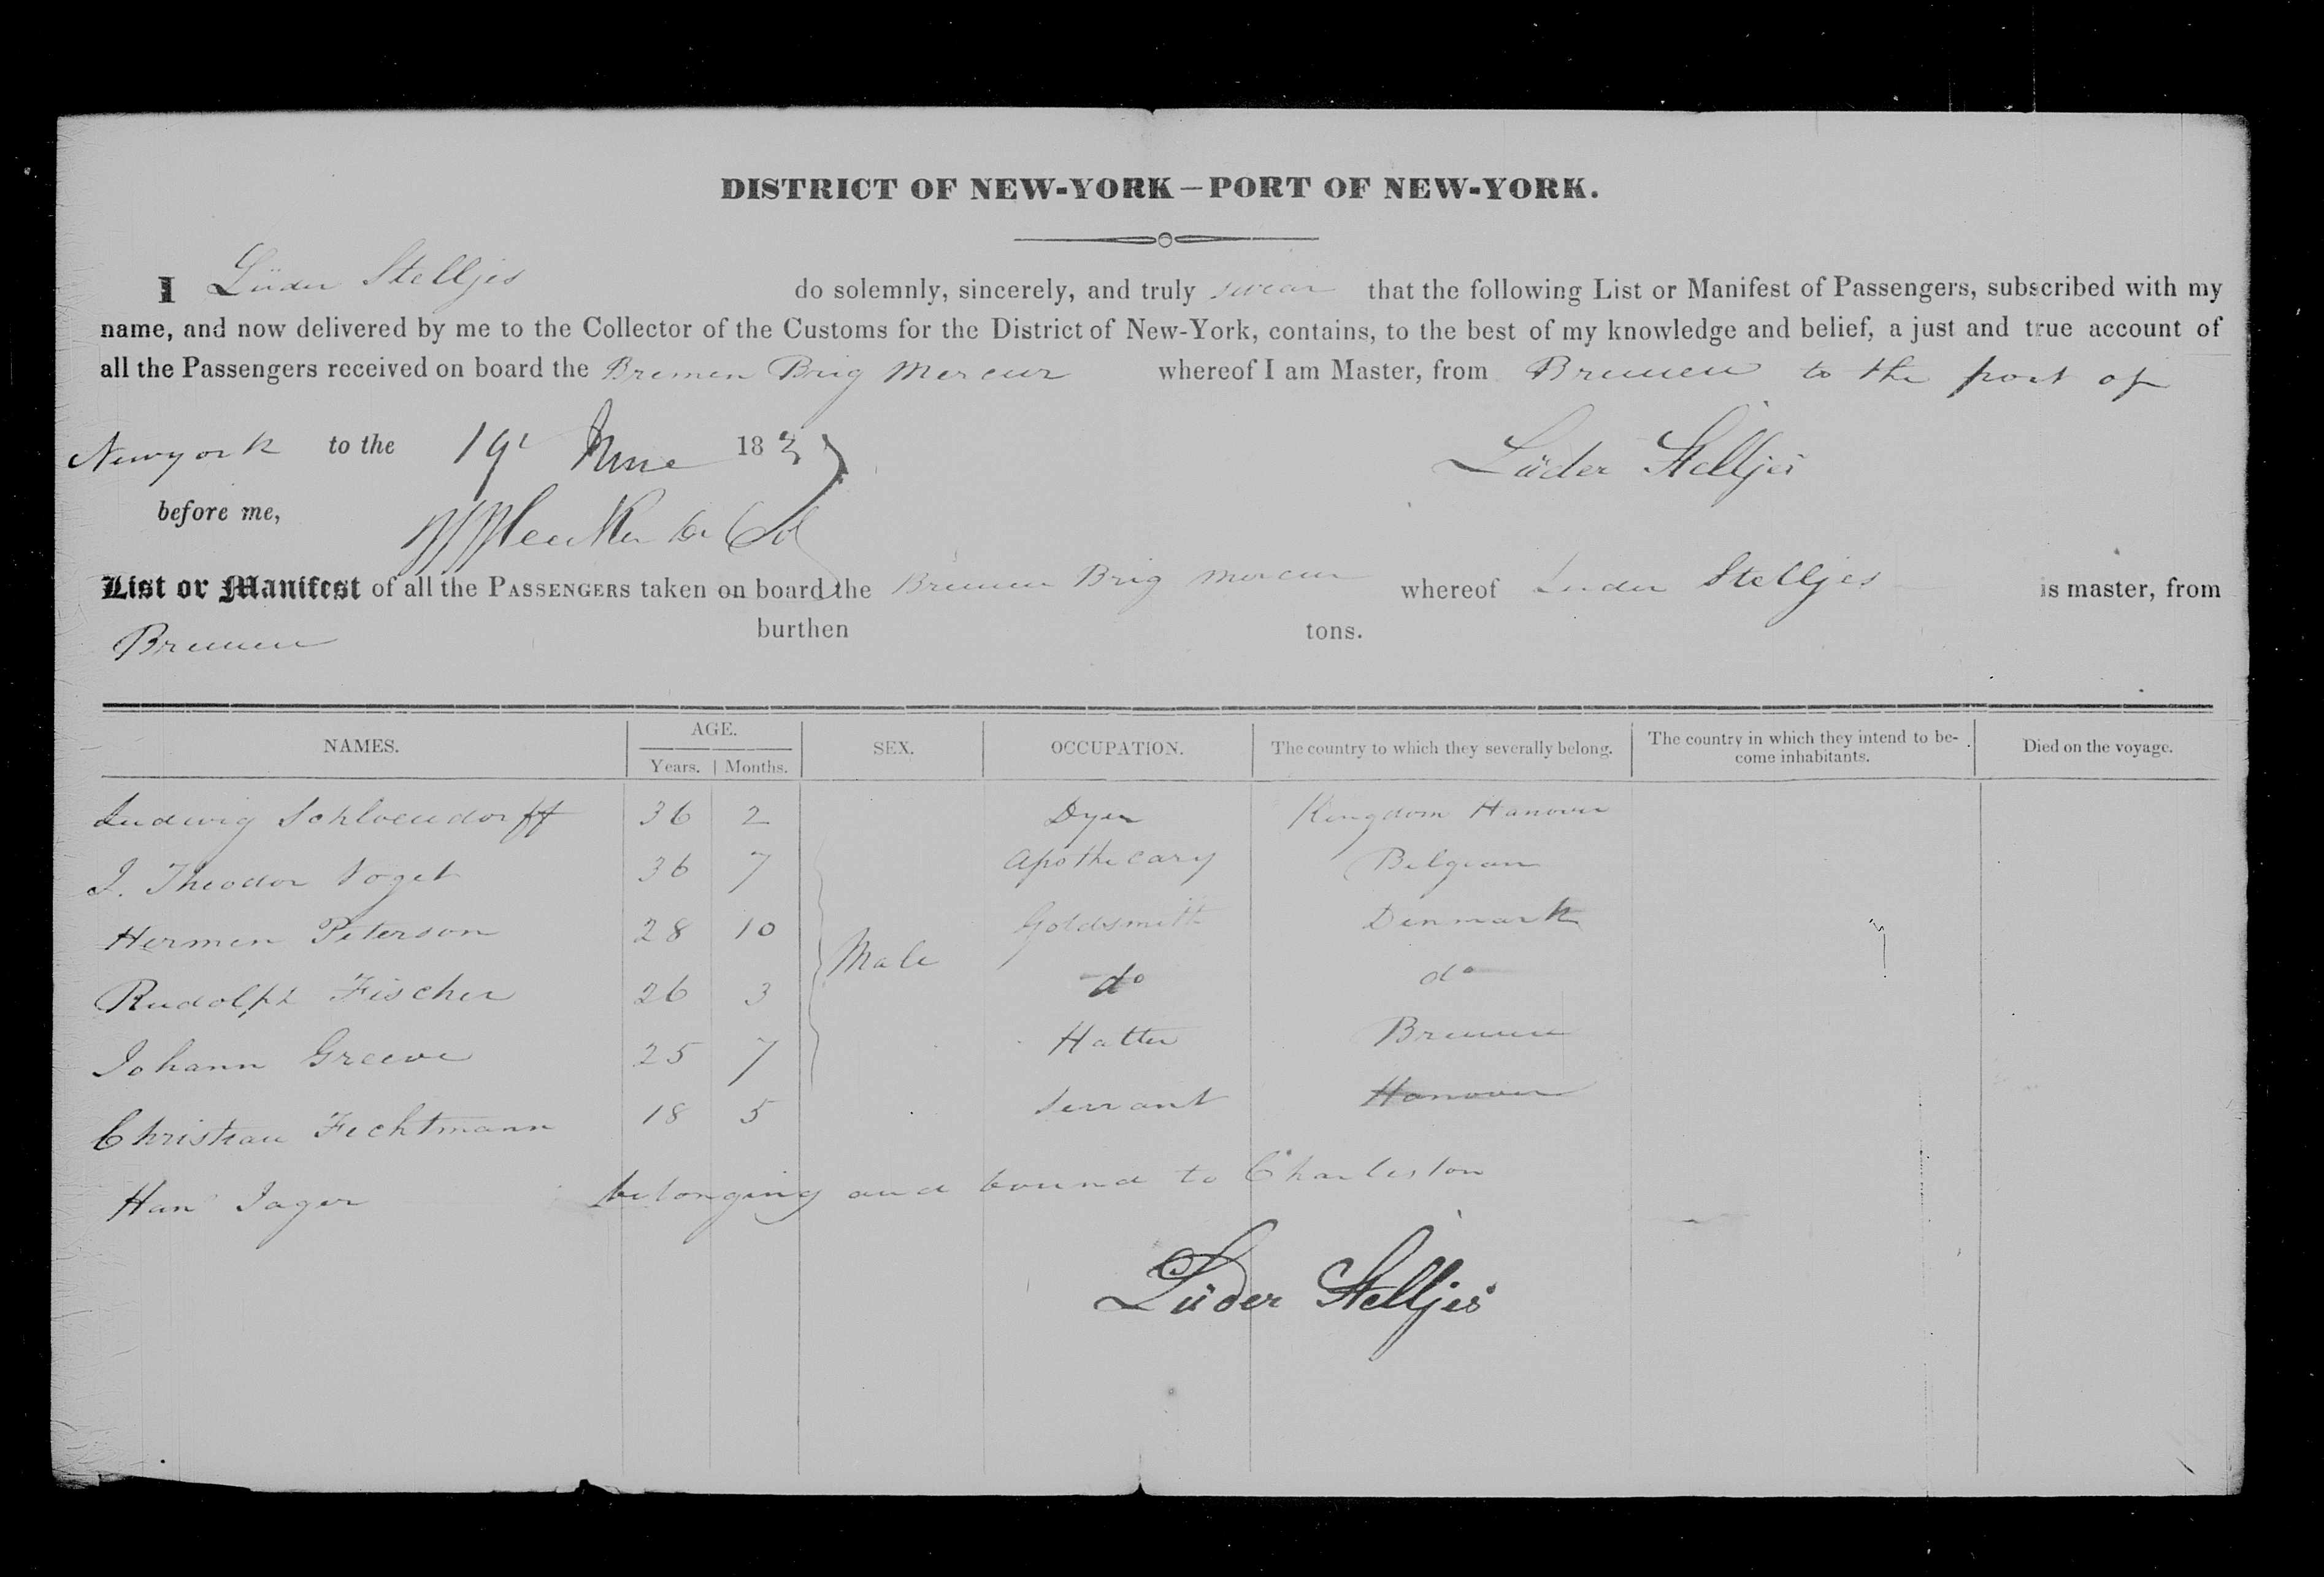 DISTRICT OF NEW-YORK—PORT OF NEW-YORK.
I Lüder Stelljes do solemnly, sincerely, and truly swear that the following List or Manifest of Passengers, subscribed with my
name, and now delivered by me to the Collector of the Customs for the District of New-York, contains, to the best of my knowledge and belief, a just and true account of
all the Passengers received on board the Bremen Brig Mercur whereof I am Master, from Bremen to the port of
Newyork to the 19 June 183
Lüder Stelljes
before me,
List or Manifest of all the PASSENGERS taken on board the Bremen Brig Mercur whereof Luder Stelljes is master, from
Bremen burthen tons.
NAMES. AGE. SEX. OCCUPATION. The country to which they severally belong. The country in which they intend to be- Died on the voyage.
Years. Months. come inhabitants.
Ludwig Schloendorff 36 2 Dyer Kingdom Hanover
J. Theodor Voget 36 7 Apothecary Belgian
Hermen Peterson 28 10 Goldsmith Denmark
Male
Rudolph Fischer 26 3 do do
Johann Greeve 25 7 Hatter Bremen
Christian Fechtmann 18 5 Servant Hanover
Han Jager belonging and bound to Charleston
Lüder Stelljes